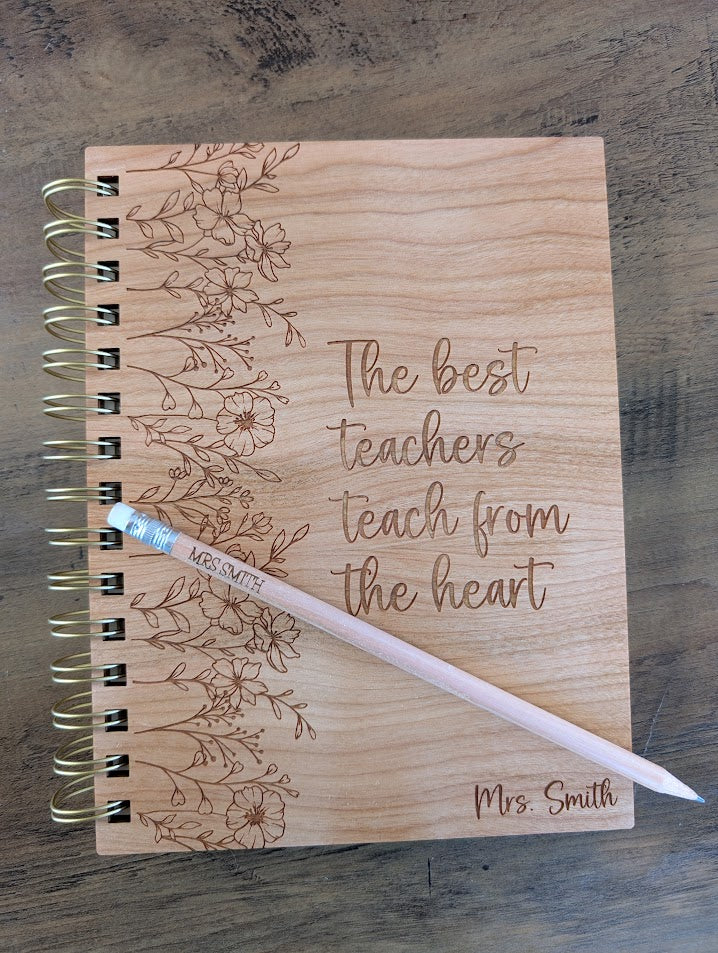 The best
teachers
teach from
the heart
MRS.SMITH
Mrs. Smith